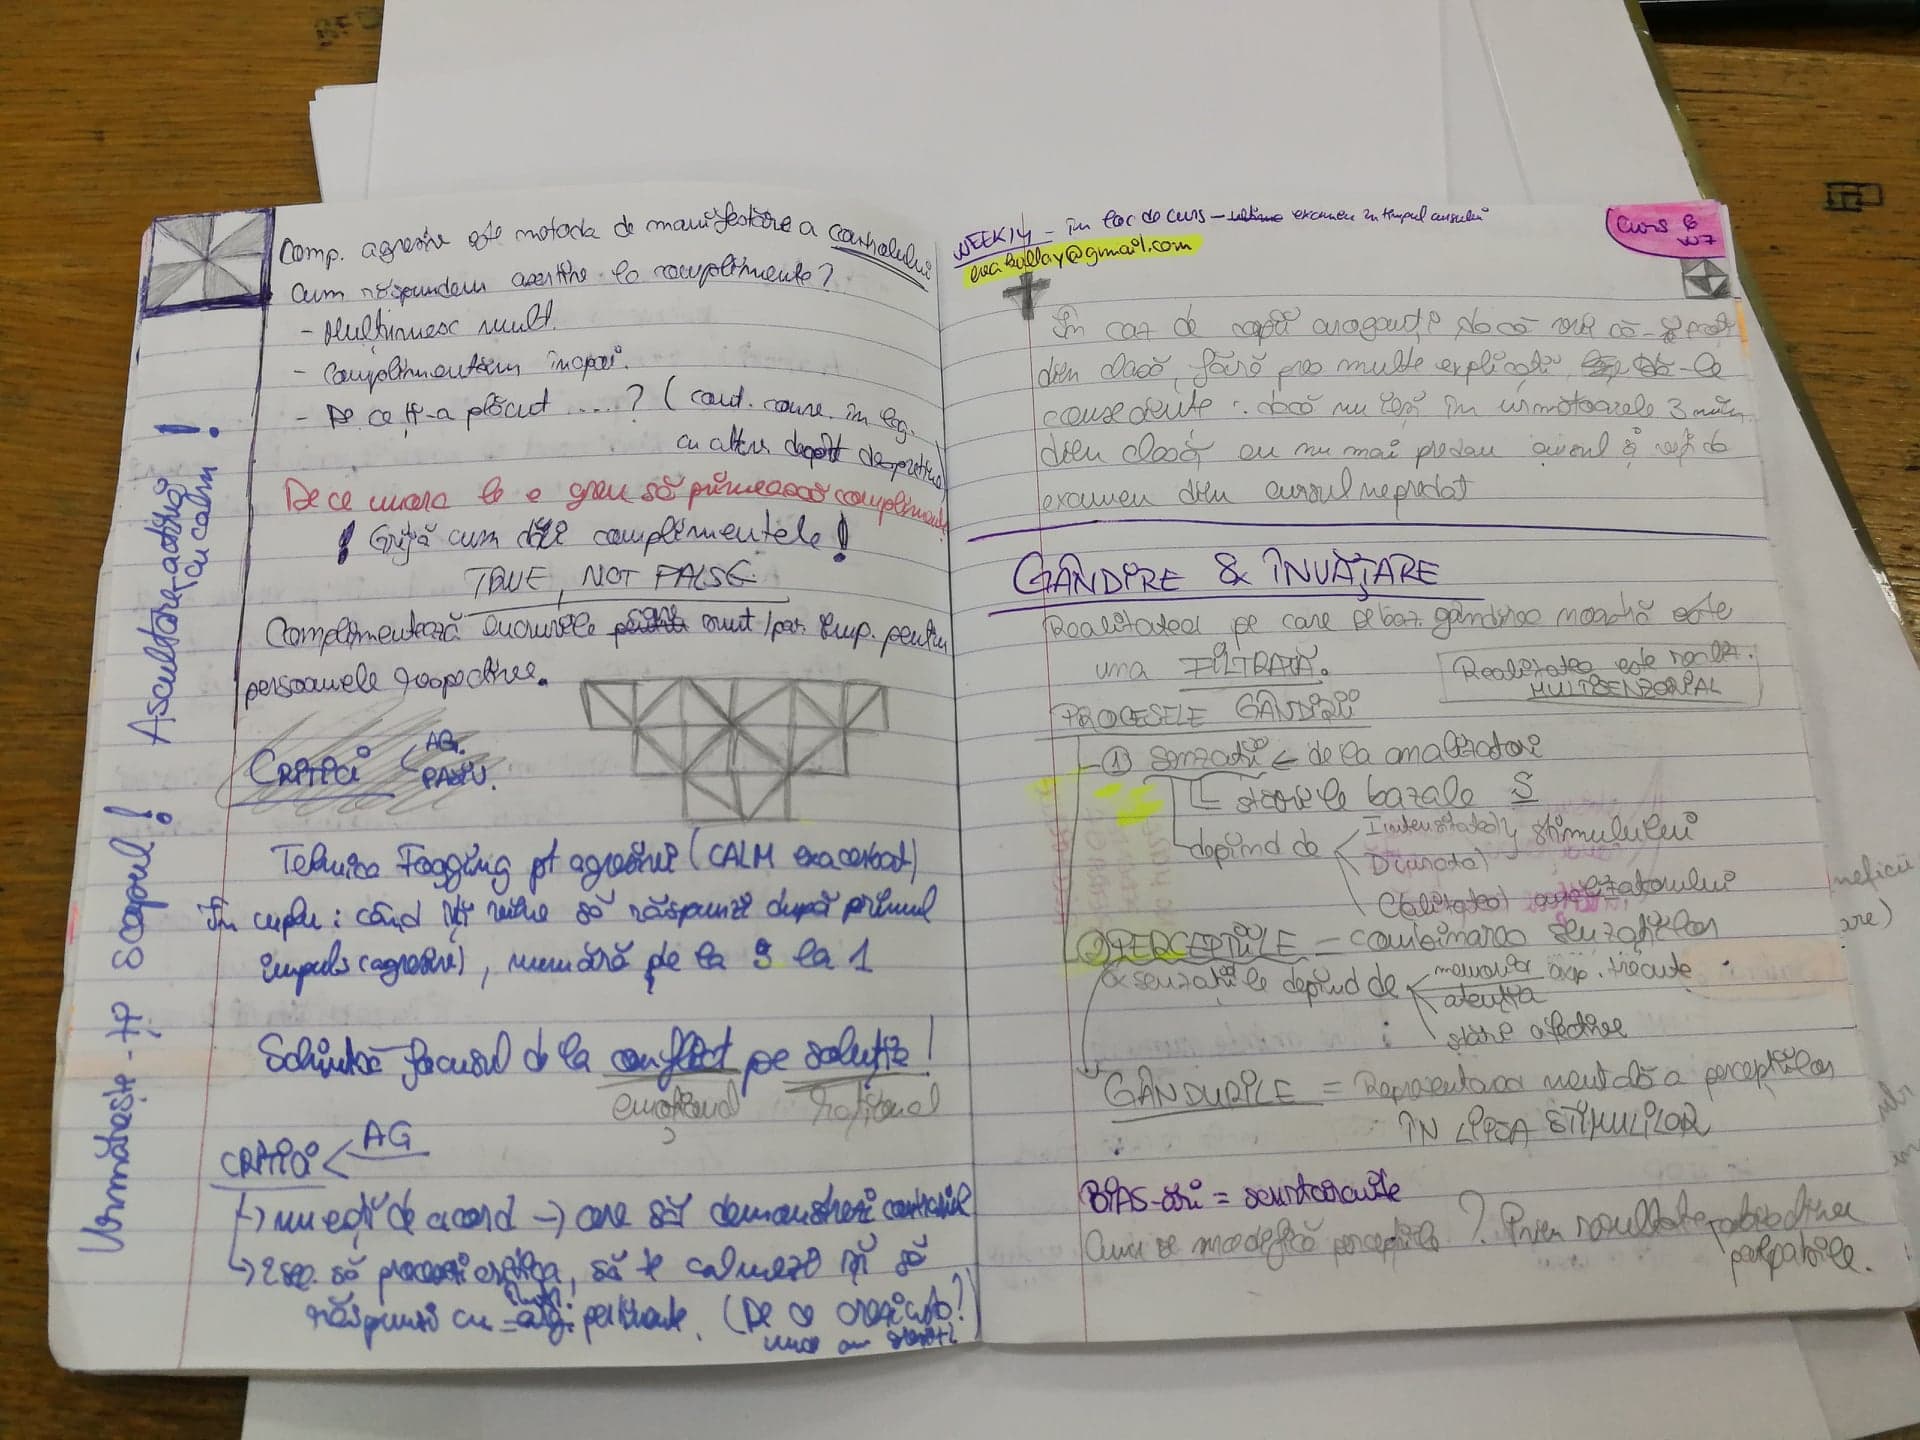 Comp. agresive este metoda de manifestare a controlului
Cum răspundem asertiv la complimente?
- Mulțumesc mult.
- Complimentăm înapoi.
- De ce ți-a plăcut ....? (cont. conv. în leg.
cu altceva
De ce unora le e greu să primească complimente
! Grijă cum dăți complimentele!
TRUE, NOT FALSE.
Complimentează lucrurile sunt/par imp. pentru
persoanele respective.
CRITICI AG.
PASIV.
Tehnica Fogging pt agresivi (CALM exacerbat)
În cuplu: când îți vine să răspunzi după primul
impuls (agresiv), numără de la 3 la 1
Schimbă focusul de la conflict pe soluție!
emoțional rațional
CRITICI AG
→ nu ești de acord → cere să demonstrezi contrariul
→ 2 sec. să procesezi critica, să te calmezi și să
răspunzi cu arg. pertinente. (De ce crezi asta?
Urmărește-ți scopul! Ascultare activă!
cu calm
WEEK 14 - în loc de curs - examen în timpul cursului
evaballay@gmail.com
Curs 6
W7
În caz de copii aroganți dacă vrei să-i
din clasă, fără prea multe explicații, dă-le
consecințe: dacă nu ies în următoarele 3 min
din clasă eu nu mai predau cursul și veți da
examen din cursul nepredat
GÂNDIRE & ÎNVĂȚARE
Realitatea pe care se baz. gândirea noastră este
una FILTRATĂ.
Realitatea este realit.
MULTISENZORIAL
PROCESELE GÂNDIRII
① Senzații ← de la analizatori
stările bazale S
depind de Intensitatea stimulului
Durata
Calitatea analizatorului
② PERCEPȚIILE - combinarea senzațiilor
& senzațiile depind de memoria exp. trecute
atenția
stări afective
GÂNDURILE = Reprezentarea mentală a percepțiilor
ÎN LIPSA STIMULILOR
BIAS-uri = scurtăturile
Cum se modifică percepțiile? Prin rezultate
palpabile.